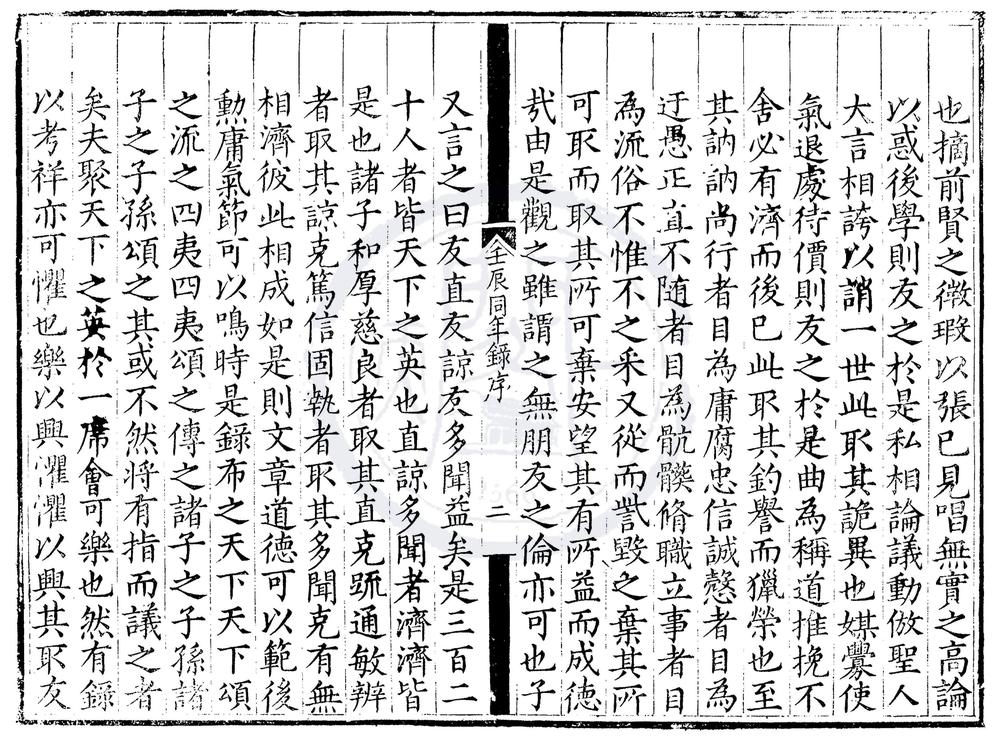 也摘前賢之微瑕以張已見唱無實之高論
以惑後學則友之於是私相論議動倣聖人
大言相誇以誚一世此取其詭異也媒釁使
氣退處待價則友之於是曲為稱道推挽不
舍必有濟而後已此取其釣譽而獵榮也至
其訥訥尚行者目為庸腐忠信誠慤者目為
迂愚正直不随者目為骯髒脩職立事者目
為流俗不惟不之采又從而訾毀之棄其所
可取而取其所可棄安望其有所益而成德
㢤由是觀之雖謂之無朋友之倫亦可也子
壬辰同年錄序
二
又言之曰友直友諒友多聞益矣是三百二
十人者皆天下之英也直諒多聞者濟濟皆
是也諸子和厚慈良者取其直克踈通敏辨
者取其諒克篤信固執者取其多聞克有無
相濟彼此相成如是則文章道德可以範後
勳庸氣節可以鳴時是録布之天下天下頌
之流之四夷四夷頌之傳之諸子之子孫諸
子之子孫頌之其或不然將有指而議之者
矣夫聚天下之英於一席會可樂也然有録
以考祥亦可懼也樂以興懼懼以興其取友